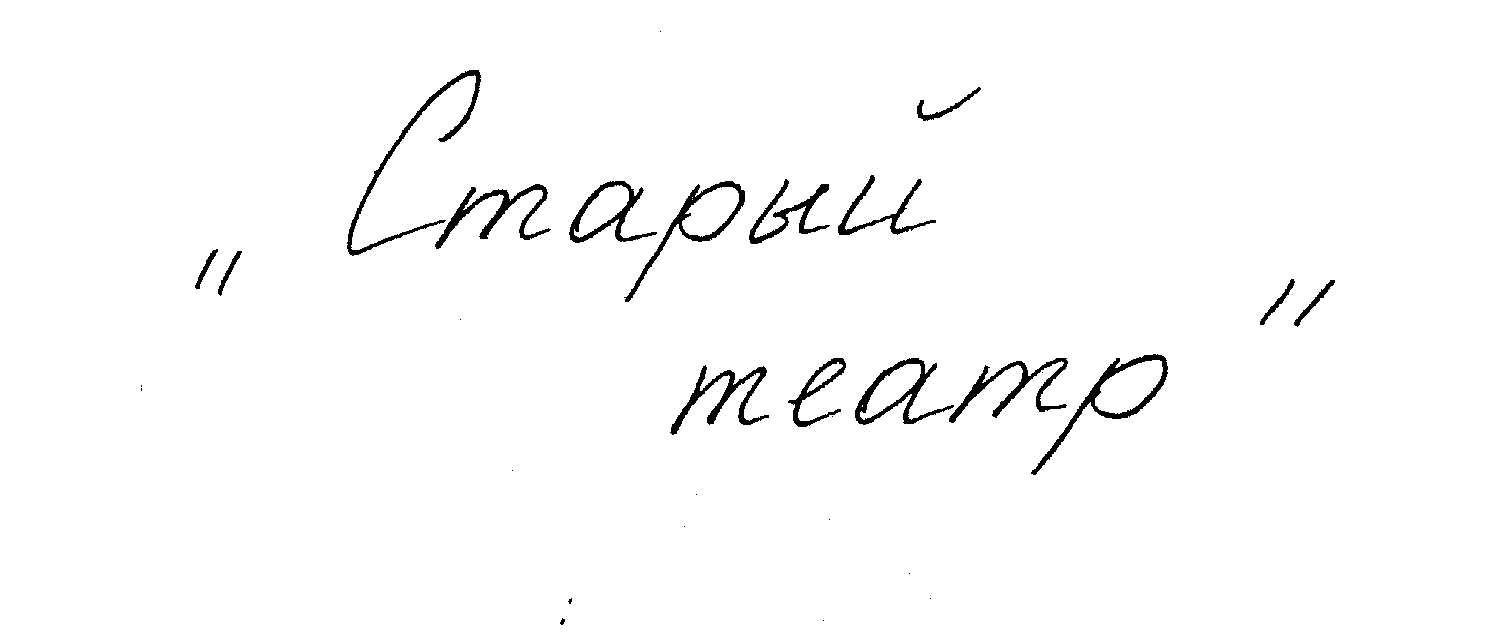 „Старый
театр"